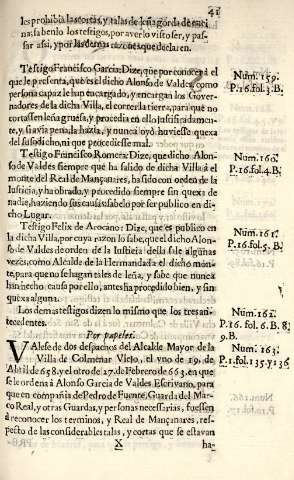 41
les prohibia las cortas, y talas de leña gorda de encina,
sabenlo los testigos, por averlo visto ser, y passar
assi, y por las demas razones que declaren.
Testigo Francisco Garcia: Dize, que por conocer à el
que le presenta, que es el dicho Alonso de Valdes, como
persona capaz le hun encargado, y encargan los Governadores
de la dicha Villa, el correr la tierra, para que no
cortassen leña gruessa, y procedia en ello justificadamente,
y si avia pena la hazia, y nunca oyò huviesse quexa
del susodicho, ni que procediesse mal.
Testigo Francisco Romera: Dize, que dicho Alonso
de Valdes siempre que ha salido de dicha Villa à el
monte del Real de Mançanares, ha sido con orden de la
Iusticia, y ha obrado, y procedido siempre sin quexa de
nadie, haziendo sus causas: sabelo por ser publico en dicho
Lugar.
Testigo Felix de Arocano: Dize, que es publico en
la dicha Villa, por cuya razon lo sabe, que el dicho Alonso
de Valdes de orden de la Iusticia della sale algunas
vezes, como Alcalde de la Hermandad à el dicho monte,
para que no se hagan tales de leña, y sabe que nunca
han hecho causa por ello, antes ha procedido bien, y sin
quexa alguna.
Los demas testigos dizen lo mismo que los tres antecedentes.
Por papeles.
Valese de dos despachos del Alcalde Mayor de la
Villa de Colmenar Viejo, el vno de 19. de
Abril de 658. y el otro de 27. de Febrero de 663. en que
se le ordena à Alonso Garcia de Valdes Escrivano, para
que en compañia de Pedro de Fuente, Guarda del Marco
Real, y otras Guardas, y personas necessarias, fuessen
à reconocer los terminos, y Real de Mançanares, respecto
de las considerables talas, y cortas que se estavan
X
ha-
Num. 159.
P. 16. fol. 3. B.
Num. 160.
P. 16. fol. 4. B.
Num. 161.
P. 16. fol. 5. B.
Num. 162.
P. 16. fol. 6. B. 8.
9. B.
Num. 163.
P. 1. fol. 135. y 136